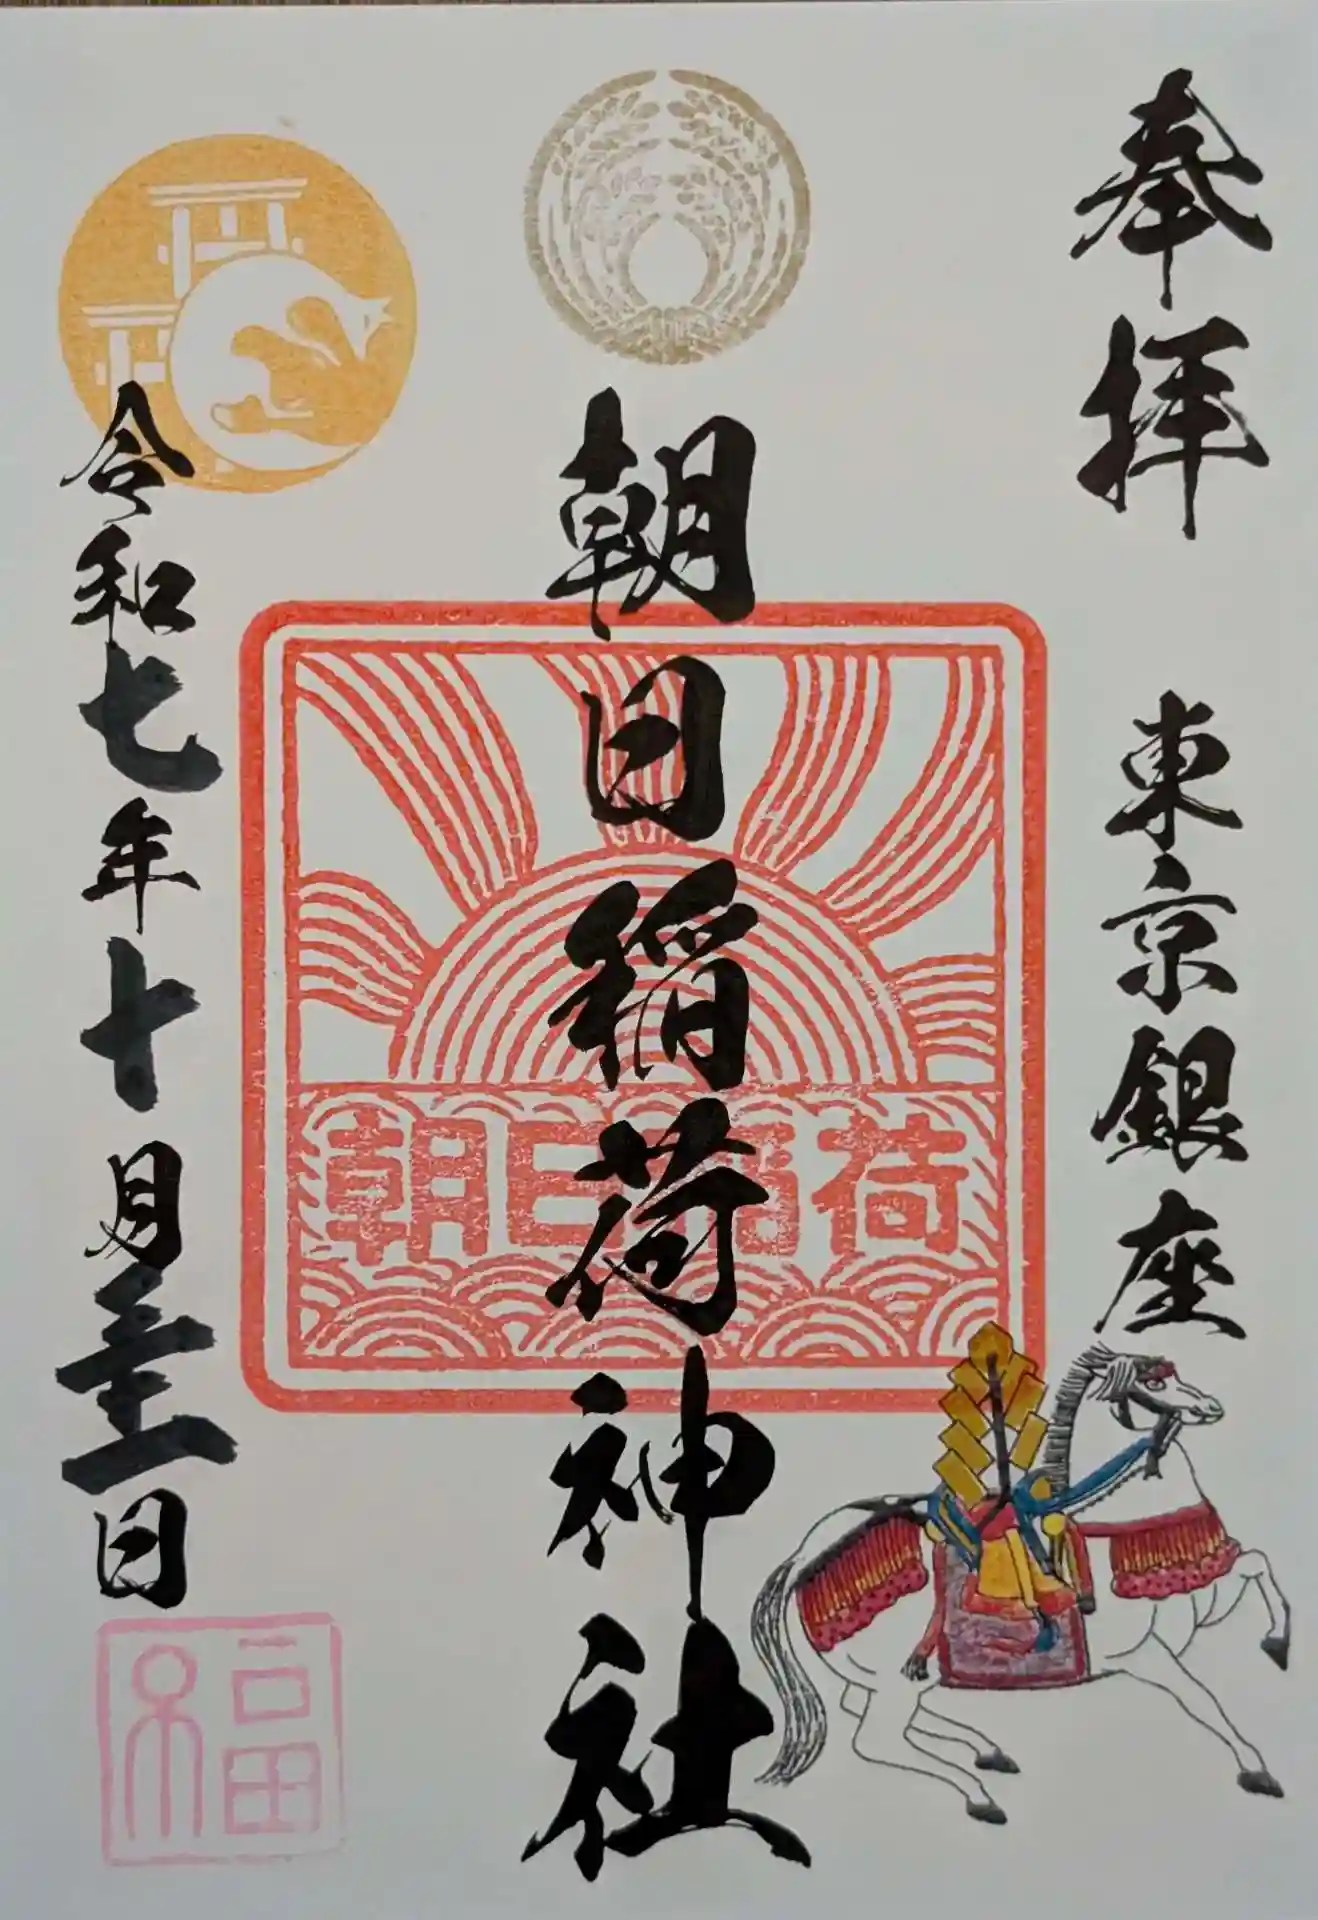 奉拝
東京銀座
朝日稲荷神社
朝日稲荷
令和七年十月 日
福